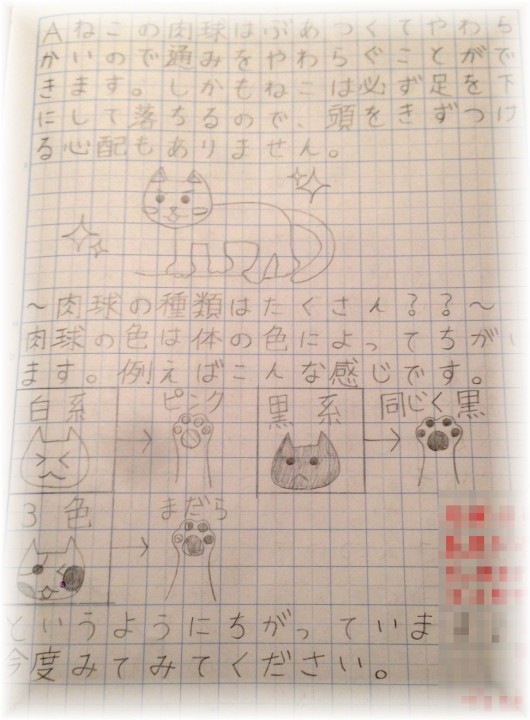 Aねこの肉球はぶあつくてやわら
かいので痛みをやわらぐことがで
きます。しかもねこは必ず足を下
にして落ちるので、頭をきずつけ
る心配もありません。
〜肉球の種類はたくさん??〜
肉球の色は体の色によってちがい
ます。例えばこんな感じです。
白系 → ピンク 黒系 → 同じく黒
3色 → まだら
というようにちがっていま
今度みてみてください。